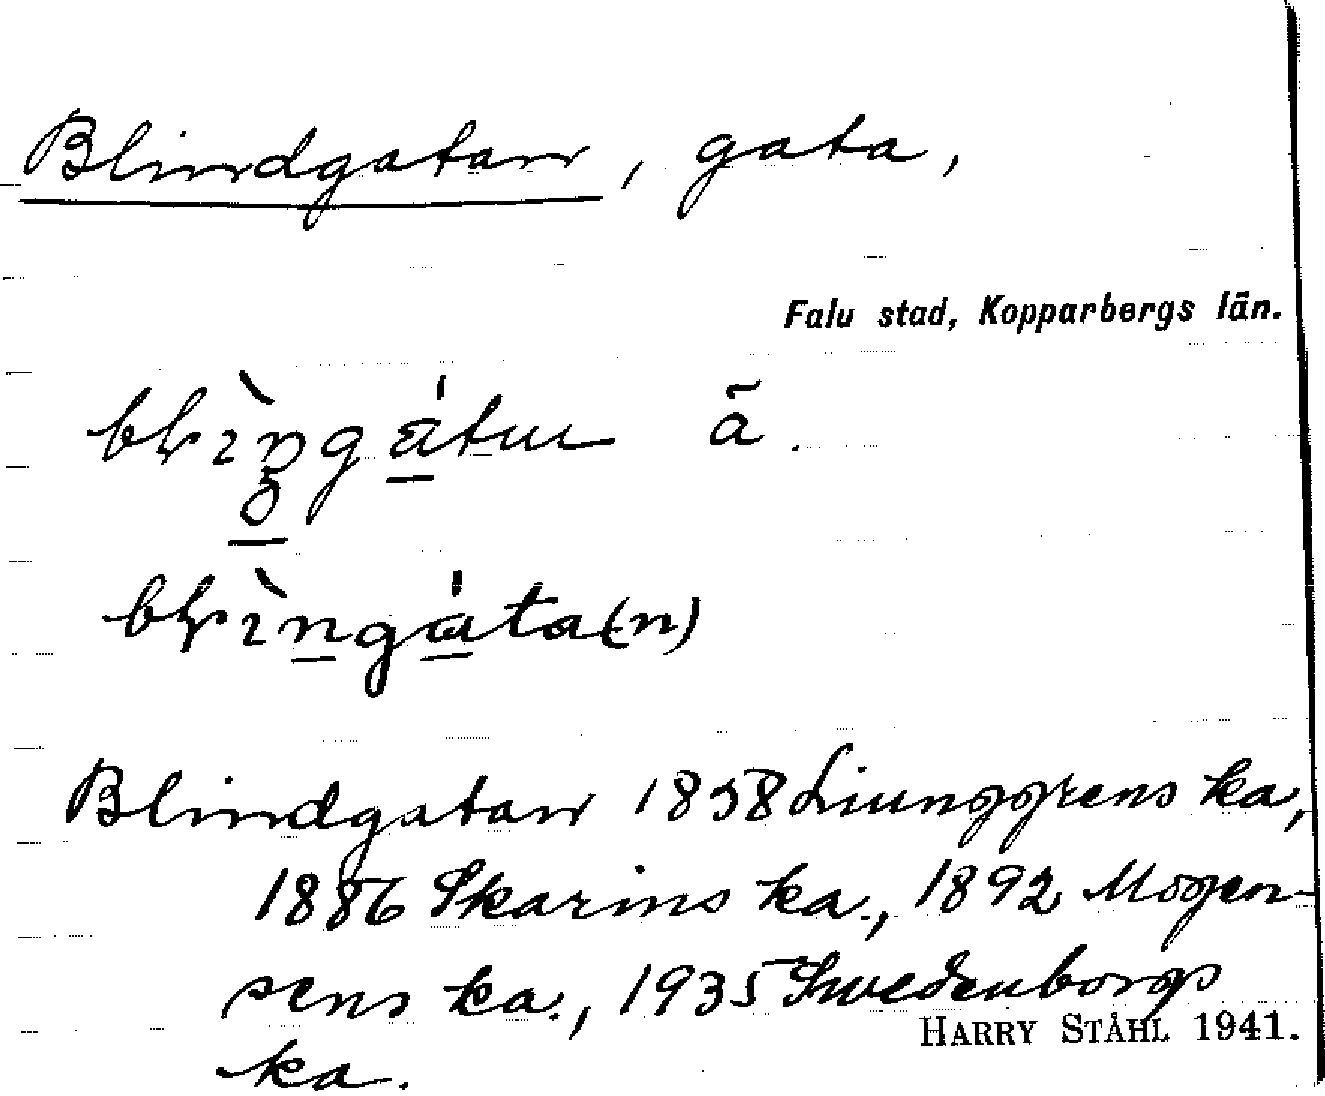 Blindgatan, gata,
Falu stad, Kopparbergs län.
ā.
Blindgatan 1838 Liunggrens ka,
1886 Skarins ka., 1892 Mogen-
sens ka., 1935 Swedenborgs
HARRY STÅHL 1941.
ka.